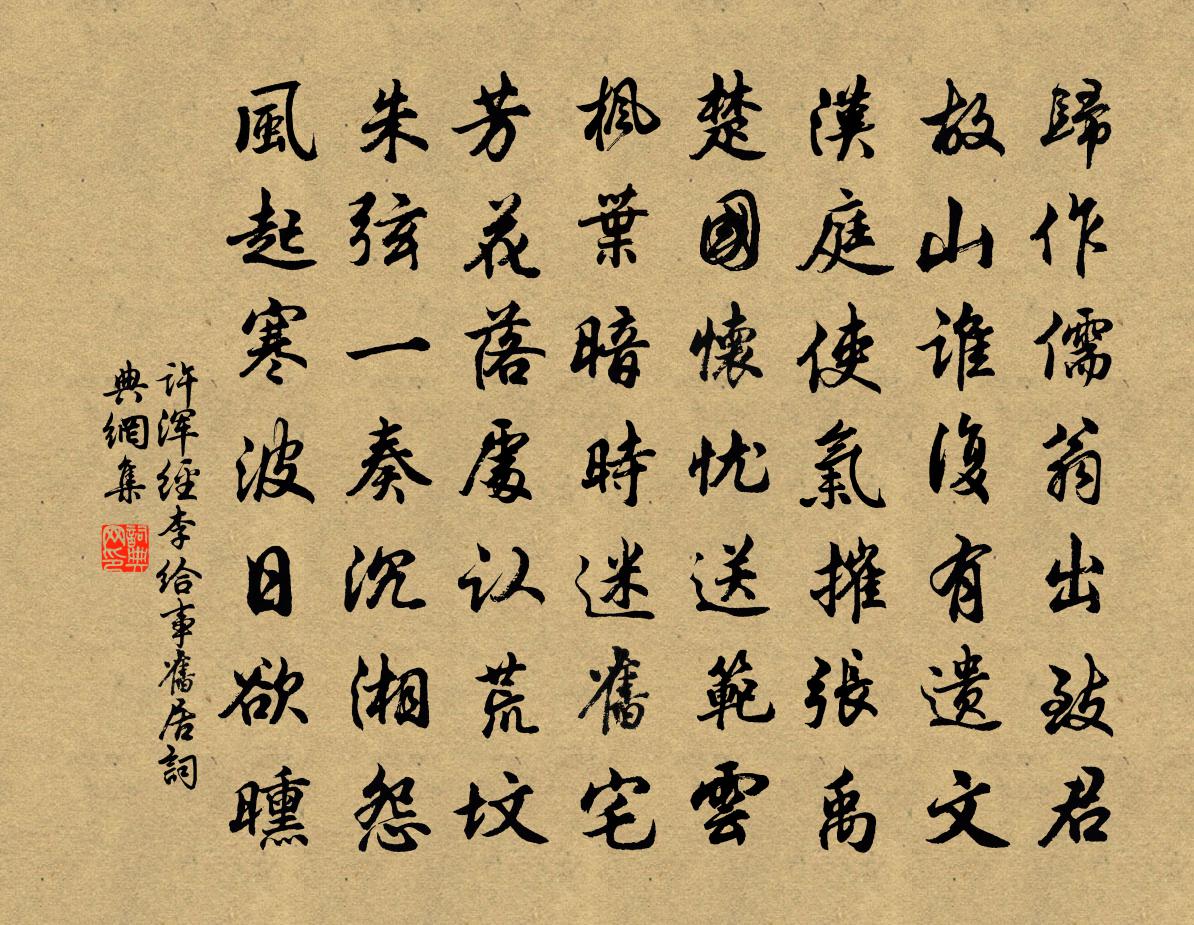 歸作儒翁出致君
故山誰復有遺文
漢庭使氣摧張禹
楚國懷忧送範雲
楓葉暗時迷舊宅
芳花落處认荒坟
朱弦一奏沉湘怨
風起寒波日欲曛
许浑經李给事舊居詞
典網集
詞典网印